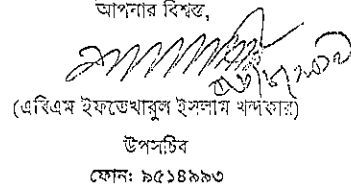 আপনার বিশ্বস্ত,
(এবিএম ইফতেখারুল ইসলাম খন্দকার)
উপসচিব
ফোন: ৯৫১৪৯৯৩